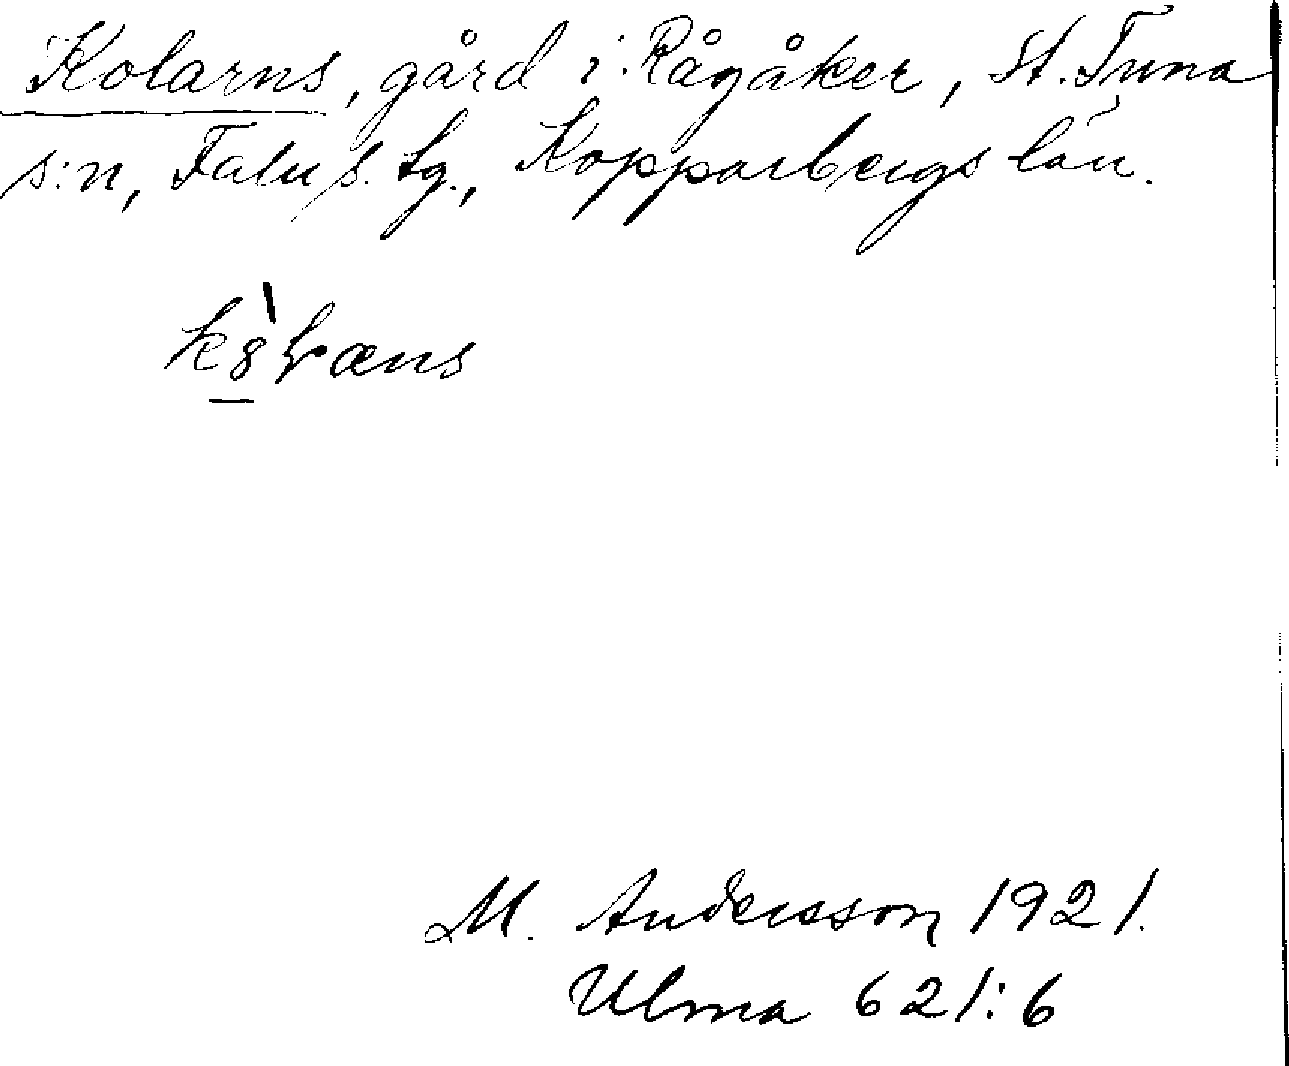 Kolarns, gård i Rågåker, St. Tuna
s:n, Falu s. tg., Kopparbergs län.
M. Andersson 1921.
Ulma 621:6